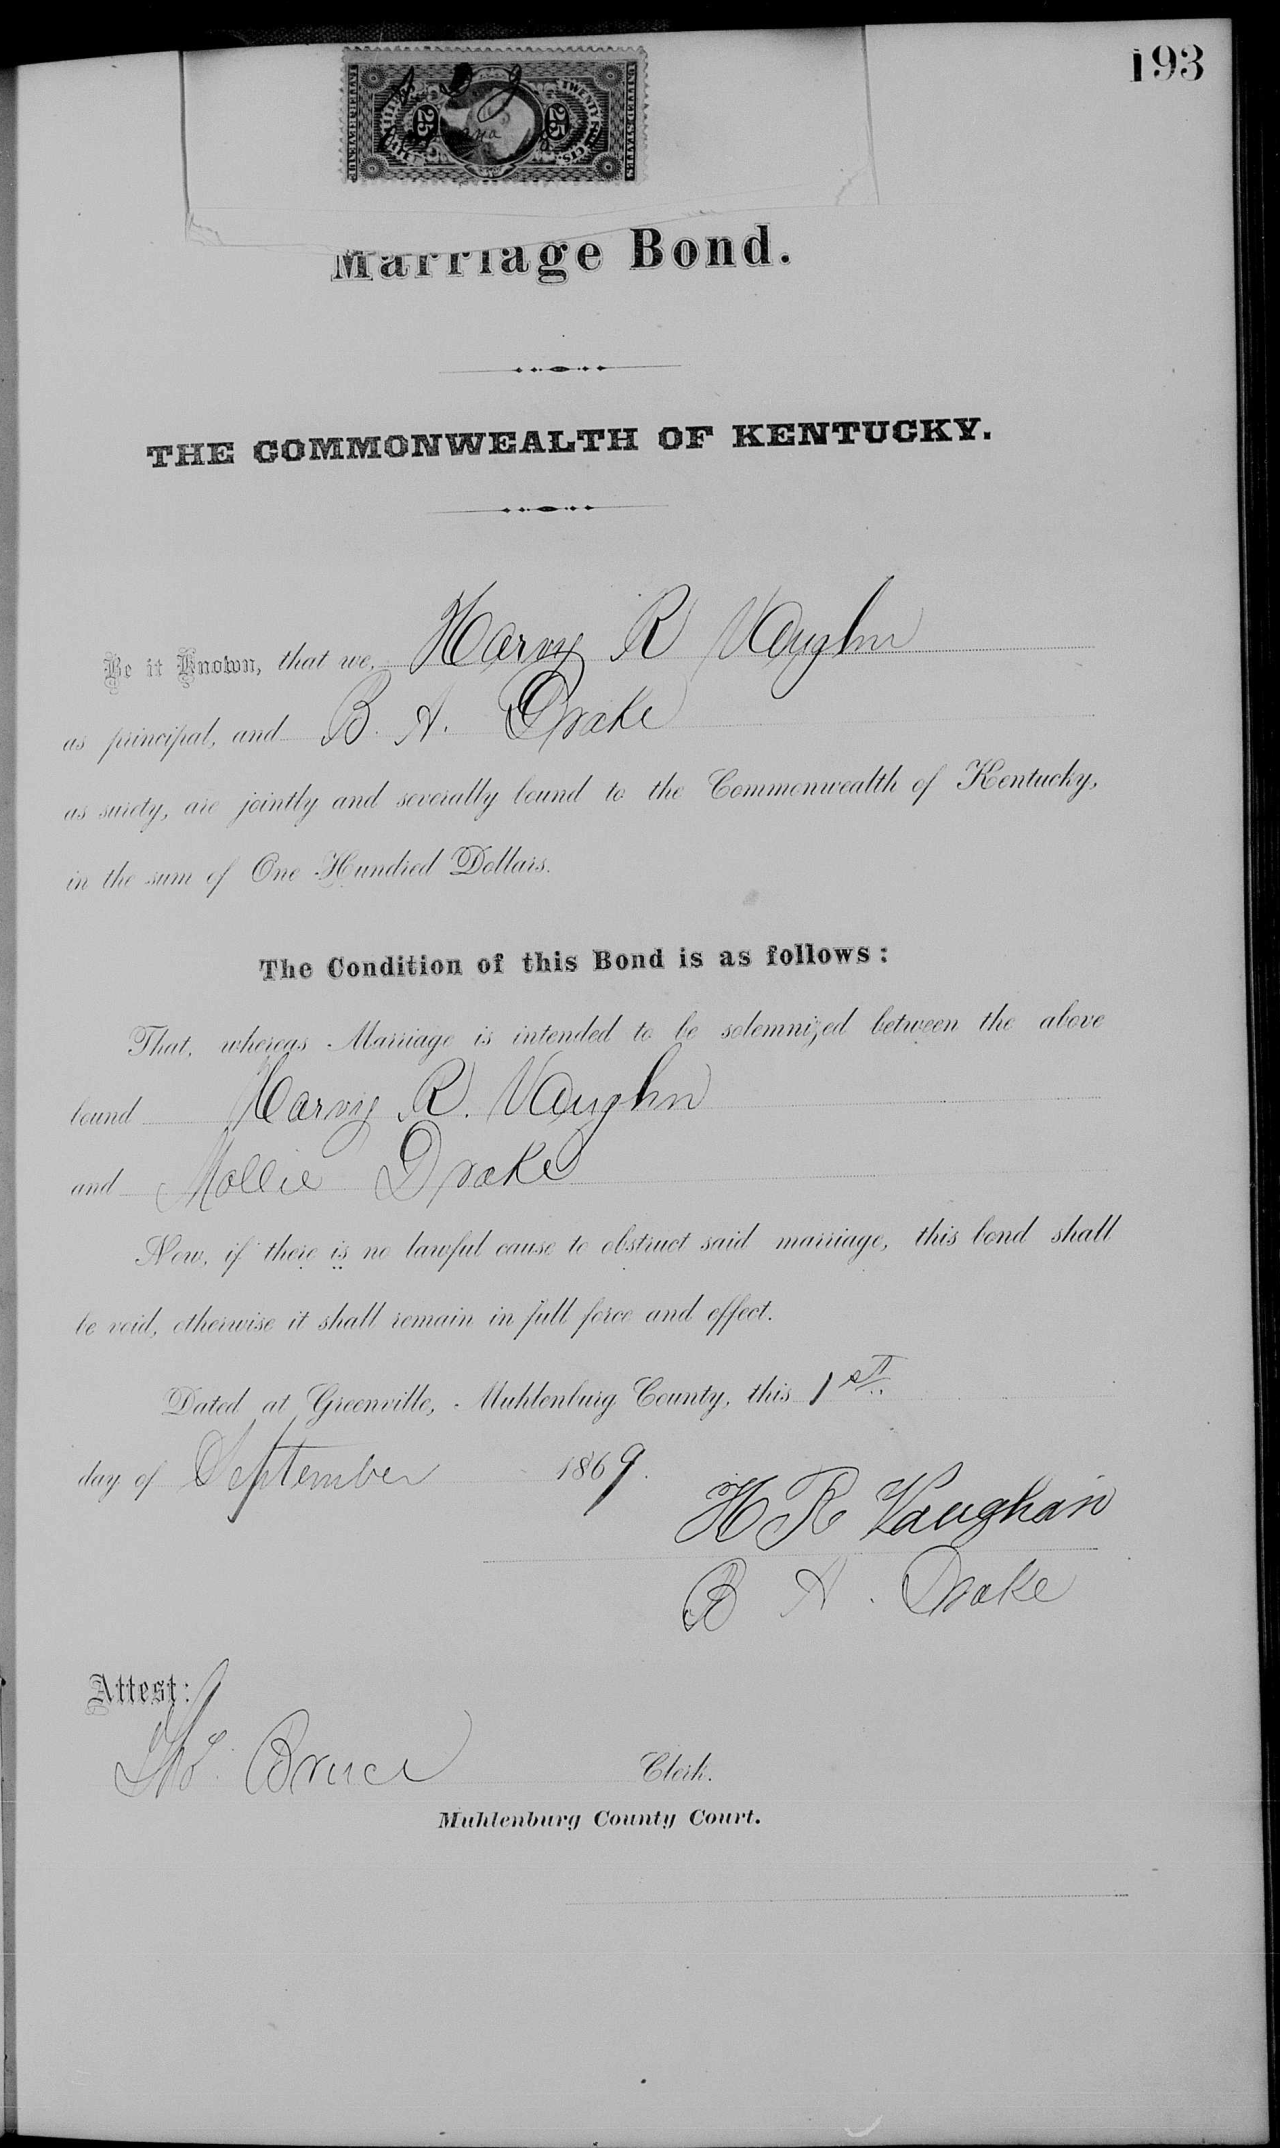 193
UNITED STATES
TWENTY FIVE CTS.
25
25
INTER. REVENUE
Marriage Bond.
THE COMMONWEALTH OF KENTUCKY.
Be it Known, that we, Harvy R Vaughn
as principal, and B. A. Drake
as surety, are jointly and severally bound to the Commonwealth of Kentucky,
in the sum of One Hundred Dollars.
The Condition of this Bond is as follows:
That, whereas Marriage is intended to be solemnized between the above
bound Harvy R. Vaughn
and Mollie Drake
Now, if there is no lawful cause to obstruct said marriage, this bond shall
be void, otherwise it shall remain in full force and effect.
Dated at Greenville, Muhlenburg County, this 1st
day of September 1869.
H R Vaughan
B A. Drake
Attest:
Thos. Bruce Clerk.
Muhlenburg County Court.